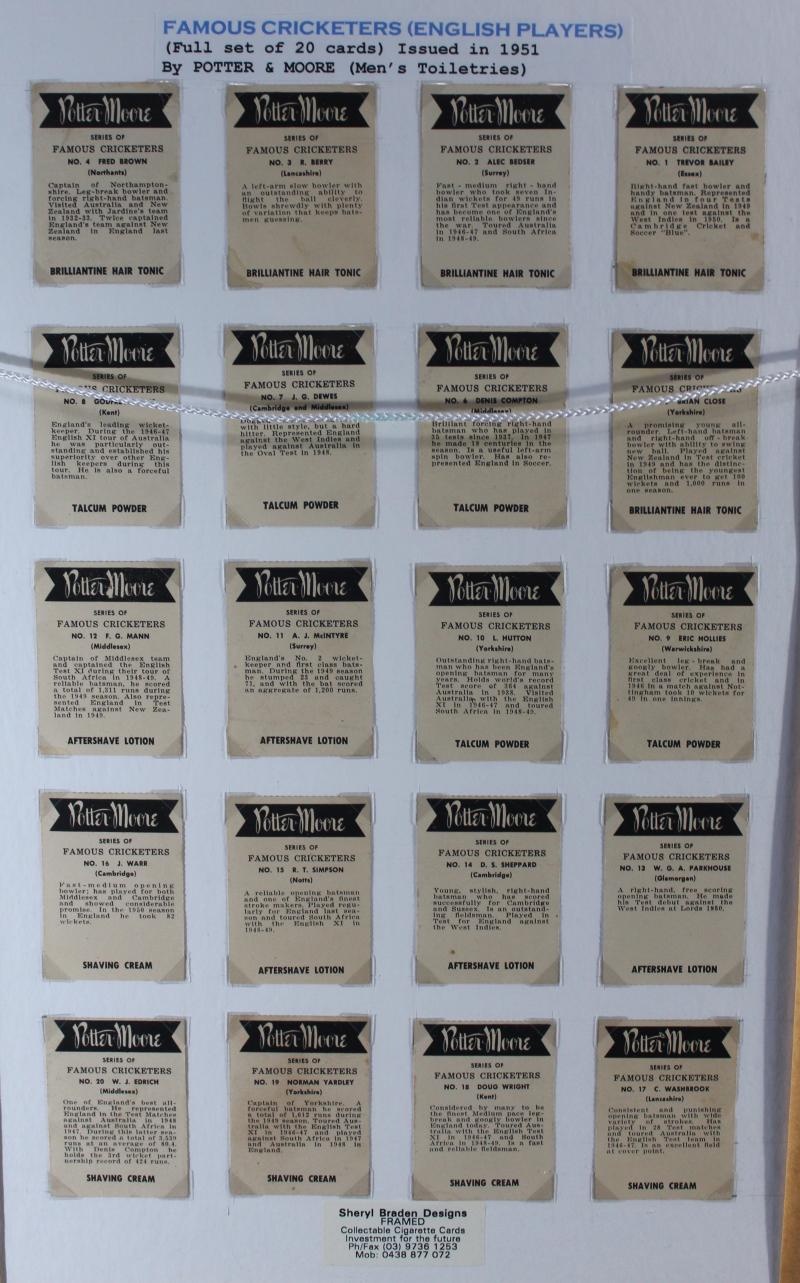 FAMOUS CRICKETERS (ENGLISH PLAYERS)
(Full set of 20 cards) Issued in 1951
By POTTER & MOORE (Men's Toiletries)
Potter Moore
SERIES OF
FAMOUS CRICKETERS
NO. 4 FRED BROWN
(Northants)
Captain of Northampton-
shire. Leg-break bowler and
forcing right-hand batsman.
Visited Australia and New
Zealand with Jardine's team
in 1932-33. Twice captained
England's team against New
Zealand in England last
season.
BRILLIANTINE HAIR TONIC
Potter Moore
SERIES OF
FAMOUS CRICKETERS
NO. 3 R. BERRY
(Lancashire)
A left-arm slow bowler with
an outstanding ability to
flight the ball cleverly.
Bowls shrewdly with plenty
of variation that keeps bats-
men guessing.
BRILLIANTINE HAIR TONIC
Potter Moore
SERIES OF
FAMOUS CRICKETERS
NO. 2 ALEC BEDSER
(Surrey)
Fast - medium right - hand
bowler who took seven In-
dian wickets for 49 runs in
his first Test appearance and
has become one of England's
most reliable bowlers since
the war. Toured Australia
in 1946-47 and South Africa
in 1948-49.
BRILLIANTINE HAIR TONIC
Potter Moore
SERIES OF
FAMOUS CRICKETERS
NO. 1 TREVOR BAILEY
(Essex)
Right-hand fast bowler and
handy batsman. Represented
England in four Tests
against New Zealand in 1949
and in one test against the
West Indies in 1950. Is a
Cambridge Cricket and
Soccer "Blue".
BRILLIANTINE HAIR TONIC
Potter Moore
SERIES OF
CRICKETERS
NO. 8
(Kent)
England's leading wicket-
keeper. During the 1946-47
English XI tour of Australia
he was particularly out-
standing and established his
superiority over other Eng-
lish keepers during this
tour. He is also a forceful
batsman.
TALCUM POWDER
Potter Moore
SERIES OF
FAMOUS CRICKETERS
NO. 7 J. G. DEWES
(Cambridge and Middlesex)
with little style, but a hard
hitter. Represented England
against the West Indies and
played against Australia in
the Oval Test in 1948.
TALCUM POWDER
Potter Moore
SERIES OF
FAMOUS CRICKETERS
NO. 6 DENIS COMPTON
(Middlesex)
Brilliant forcing right-hand
batsman who has played in
35 tests since 1937. In 1947
he made 18 centuries in the
season. Is a useful left-arm
spin bowler. Has also re-
presented England in Soccer.
TALCUM POWDER
Potter Moore
SERIES OF
FAMOUS
BRIAN CLOSE
(Yorkshire)
A promising young all-
rounder. Left-hand batsman
and right-hand off - break
bowler with ability to swing
new ball. Played against
New Zealand in Test cricket
in 1949 and has the distinc-
tion of being the youngest
Englishman ever to get 100
wickets and 1,000 runs in
one season.
BRILLIANTINE HAIR TONIC
Potter Moore
SERIES OF
FAMOUS CRICKETERS
NO. 12 F. G. MANN
(Middlesex)
Captain of Middlesex team
and captained the English
Test XI during their tour of
South Africa in 1948-49. A
reliable batsman, he scored
a total of 1,311 runs during
the 1949 season. Also repre-
sented England in Test
Matches against New Zea-
land in 1949.
AFTERSHAVE LOTION
Potter Moore
SERIES OF
FAMOUS CRICKETERS
NO. 11 A. J. McINTYRE
(Surrey)
England's No. 2 wicket-
keeper and first class bats-
man. During the 1949 season
he stumped 23 and caught
71, and with the bat scored
an aggregate of 1,200 runs.
AFTERSHAVE LOTION
Potter Moore
SERIES OF
FAMOUS CRICKETERS
NO. 10 L. HUTTON
(Yorkshire)
Outstanding right-hand bats-
man who has been England's
opening batsman for many
years. Holds world's record
Test score of 364 against
Australia in 1938. Visited
Australia with the English
XI in 1946-47 and toured
South Africa in 1948-49.
TALCUM POWDER
Potter Moore
SERIES OF
FAMOUS CRICKETERS
NO. 9 ERIC HOLLIES
(Warwickshire)
Excellent leg - break and
googly bowler. Has had a
great deal of experience in
first class cricket and in
1946 in a match against Not-
tingham took 10 wickets for
49 in one innings.
TALCUM POWDER
Potter Moore
SERIES OF
FAMOUS CRICKETERS
NO. 16 J. WARR
(Cambridge)
Fast-medium opening
bowler; has played for both
Middlesex and Cambridge
and showed considerable
promise. In the 1950 season
in England he took 82
wickets.
SHAVING CREAM
Potter Moore
SERIES OF
FAMOUS CRICKETERS
NO. 15 R. T. SIMPSON
(Notts)
A reliable opening batsman
and one of England's finest
stroke makers. Played regu-
larly for England last sea-
son and toured South Africa
with the English XI in
1948-49.
AFTERSHAVE LOTION
Potter Moore
SERIES OF
FAMOUS CRICKETERS
NO. 14 D. S. SHEPPARD
(Cambridge)
Young, stylish, right-hand
batsman who has scored
successfully for Cambridge
and Sussex. Is an outstand-
ing fieldsman. Played in
Test for England against
the West Indies.
AFTERSHAVE LOTION
Potter Moore
SERIES OF
FAMOUS CRICKETERS
NO. 13 W. G. A. PARKHOUSE
(Glamorgan)
A right-hand, free scoring
opening batsman. He made
his Test debut against the
West Indies at Lords 1950.
AFTERSHAVE LOTION
Potter Moore
SERIES OF
FAMOUS CRICKETERS
NO. 20 W. J. EDRICH
(Middlesex)
One of England's best all-
rounders. He represented
England in the Test Matches
against Australia in 1948
and against South Africa in
1947. During this latter sea-
son he scored a total of 3,539
runs at an average of 80.4.
With Denis Compton he
holds the 3rd wicket part-
nership record of 424 runs.
SHAVING CREAM
Potter Moore
SERIES OF
FAMOUS CRICKETERS
NO. 19 NORMAN YARDLEY
(Yorkshire)
Captain of Yorkshire. A
forceful batsman he scored
a total of 1,612 runs during
the 1949 season. Toured Aus-
tralia with the English Test
XI in 1946-47 and played
against South Africa in 1947
and Australia in 1948 in
England.
SHAVING CREAM
Potter Moore
SERIES OF
FAMOUS CRICKETERS
NO. 18 DOUG WRIGHT
(Kent)
Considered by many to be
the finest Medium pace leg-
break and googly bowler in
England today. Toured Aus-
tralia with the English Test
XI in 1946-47 and South
Africa in 1948-49. Is a fast
and reliable fieldsman.
SHAVING CREAM
Potter Moore
SERIES OF
FAMOUS CRICKETERS
NO. 17 C. WASHBROOK
(Lancashire)
Consistent and punishing
opening batsman with wide
variety of strokes. Has
played in 28 Test matches
and toured Australia with
the English Test team in
1946-47. Is an excellent field
at cover point.
SHAVING CREAM
Sheryl Braden Designs
FRAMED
Collectable Cigarette Cards
Investment for the future
Ph/Fax (03) 9736 1253
Mob: 0438 877 072